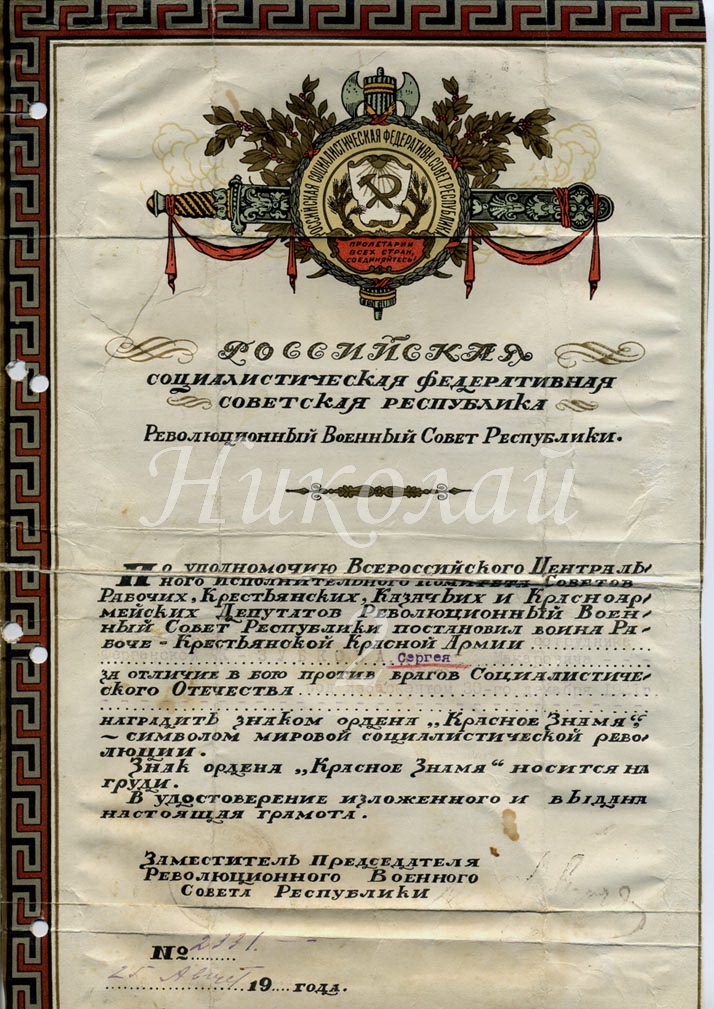 РОССИЙСКАЯ СОЦИАЛИСТИЧЕСКАЯ ФЕДЕРАТИВН. СОВЕТ. РЕСПУБЛИКА
ПРОЛЕТАРИИ
ВСЕХ СТРАН,
СОЕДИНЯЙТЕСЬ!
РОССИЙСКАЯ
СОЦИАЛИСТИЧЕСКАЯ ФЕДЕРАТИВНАЯ
СОВЕТСКАЯ РЕСПУБЛИКА
РЕВОЛЮЦИОННЫЙ ВОЕННЫЙ СОВЕТ РЕСПУБЛИКИ.
Николай
ПО УПОЛНОМОЧИЮ ВСЕРОССИЙСКОГО ЦЕНТРАЛЬ-
НОГО ИСПОЛНИТЕЛЬНОГО КОМИТЕТА СОВЕТОВ
РАБОЧИХ, КРЕСТЬЯНСКИХ, КАЗАЧЬИХ И КРАСНОАР-
МЕЙСКИХ ДЕПУТАТОВ РЕВОЛЮЦИОННЫЙ ВОЕН-
НЫЙ СОВЕТ РЕСПУБЛИКИ ПОСТАНОВИЛ ВОИНА РА-
БОЧЕ-КРЕСТЬЯНСКОЙ КРАСНОЙ АРМИИ
Сергея
ЗА ОТЛИЧИЕ В БОЮ ПРОТИВ ВРАГОВ СОЦИАЛИСТИЧЕ-
СКОГО ОТЕЧЕСТВА
НАГРАДИТЬ ЗНАКОМ ОРДЕНА „КРАСНОЕ ЗНАМЯ“
~ СИМВОЛОМ МИРОВОЙ СОЦИАЛИСТИЧЕСКОЙ РЕВО-
ЛЮЦИИ.
ЗНАК ОРДЕНА „КРАСНОЕ ЗНАМЯ“ НОСИТСЯ НА
ГРУДИ.
В УДОСТОВЕРЕНИЕ ИЗЛОЖЕННОГО И ВЫДАНА
НАСТОЯЩАЯ ГРАМОТА.
ЗАМЕСТИТЕЛЬ ПРЕДСЕДАТЕЛЯ
РЕВОЛЮЦИОННОГО ВОЕННОГО
СОВЕТА РЕСПУБЛИКИ
№ 2331.
25 Август 19 ГОДА.